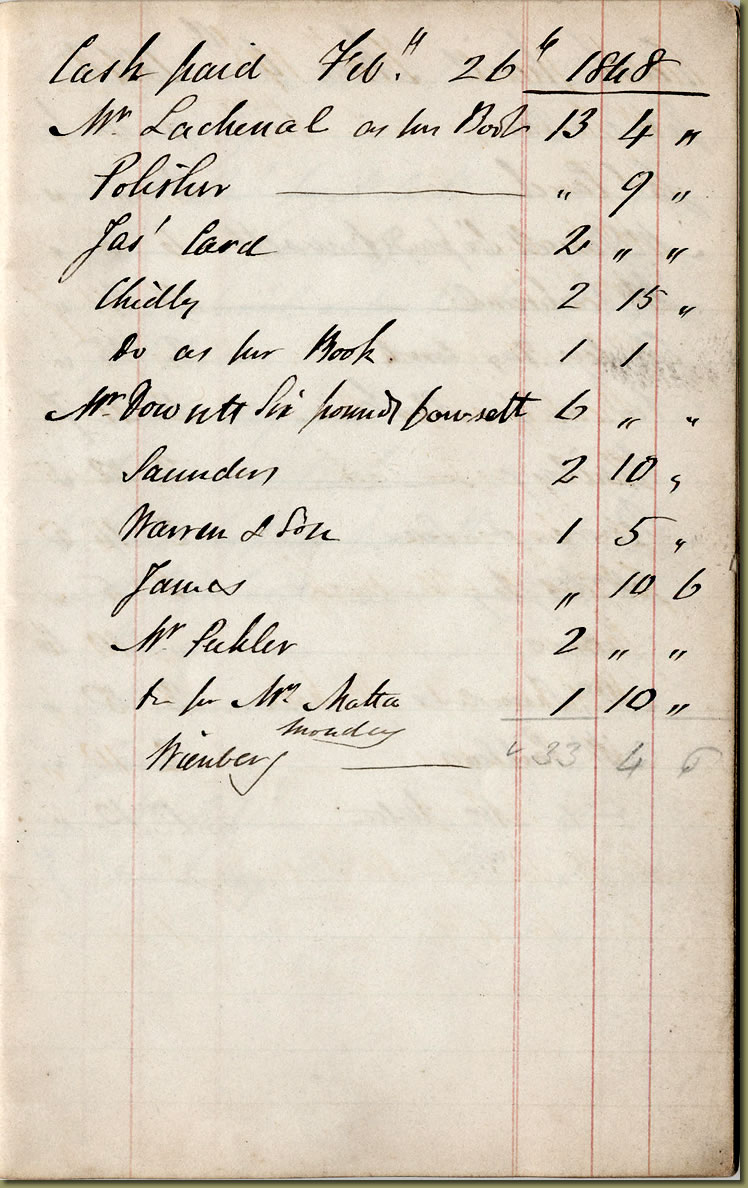 Cash paid Feby. 26th 1848
Mr Lachenal as per Book 13 4 "
Polisher " 9 "
Jas' Card 2 " "
Chidly 2 15 "
Do as per Book 1 1
Mr Dowsett Six pounds Dowsett 6 " "
Saunders 2 10 "
Warren & Son 1 5 "
James " 10 6
Mr Pickler 2 " "
Do for Mr Matta 1 10 "
Monday
Wienberg 33 4 6